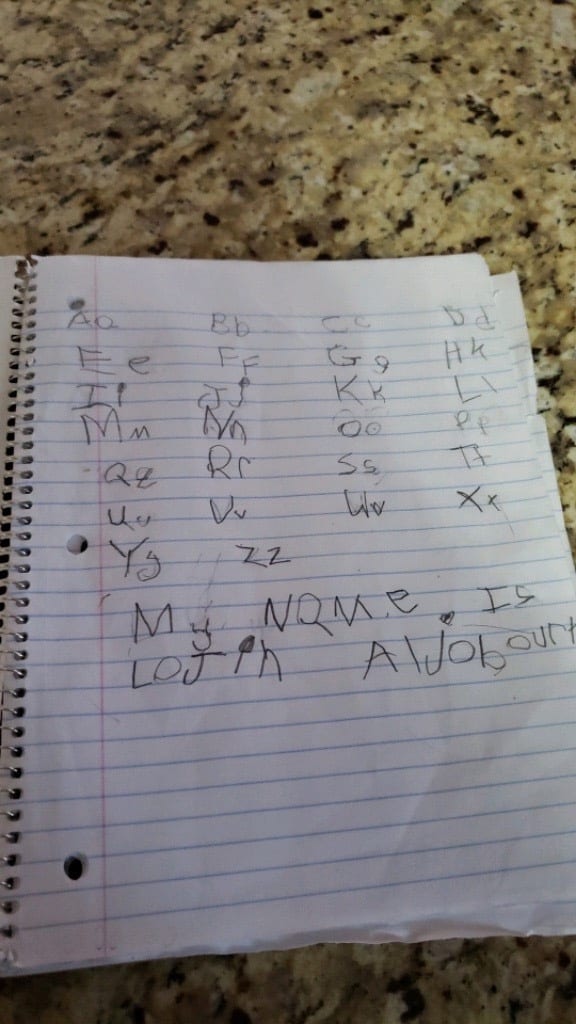 Aa Bb Cc Dd
Ee Ff Gg Hh
Ii Jj Kk Ll
Mm Nn Oo Pp
Qq Rr Ss Tt
Uu Vv Ww Xx
Yy Zz
My NaMe Is
LOJin AlJobourt